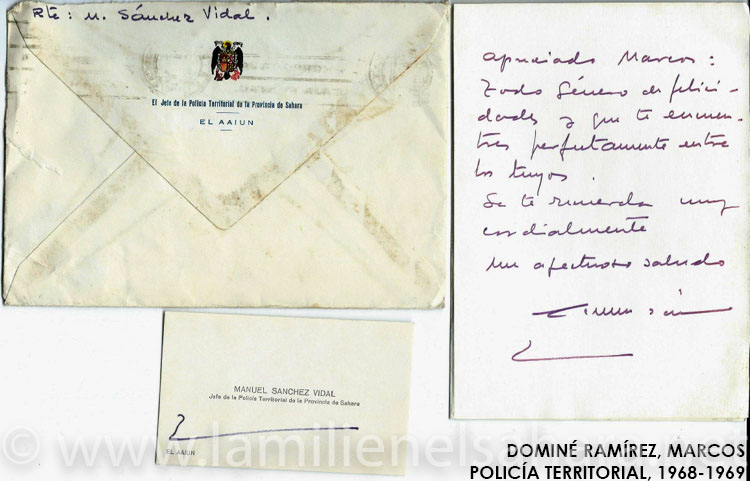 Rte: M. Sánchez Vidal.
El Jefe de la Policía Territorial de la Provincia de Sahara
EL AAIUN
Apreciado Marcos:
Todo género de felici-
dades y que te encuen-
tres perfectamente entre
los tuyos.
Se te recuerda muy
cordialmente
Un afectuoso saludo
MANUEL SANCHEZ VIDAL
Jefe de la Policía Territorial de la Provincia de Sahara
EL AAIUN
© www.lamilienelsahara
DOMINÉ RAMÍREZ, MARCOS
POLICÍA TERRITORIAL, 1968-1969